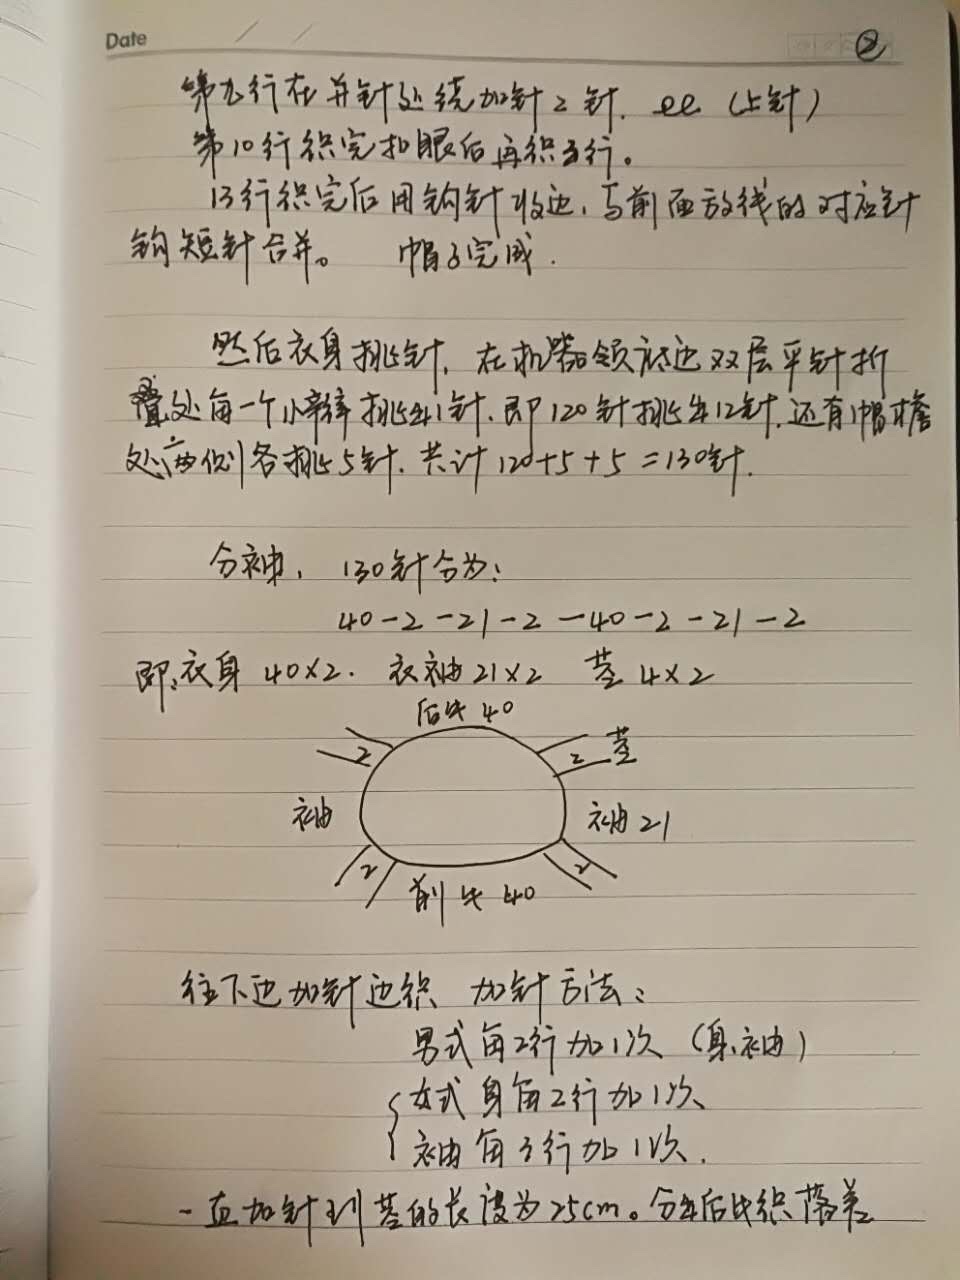 Date
②
第九行在并针处绕加针2针. ee (上针)
第10行织完扣眼后再织3行。
13行织完后用钩针收边,与前面放线的对应针
钩短针合并。 帽子完成.
然后衣身挑针,在机器领底边双层平针折
叠处每一个小辫挑出1针.即120针挑出12针.还有帽檐
处两侧各挑5针.共计120+5+5=130针.
分袖, 130针分为:
40-2-21-2-40-2-21-2
即:衣身40×2. 衣袖21×2 茎4×2
后片40
2
2
茎
衣袖
衣袖21
2
2
前片40
往下边加针边织 加针方法:
男式每2行加1次 (身、袖)
女式身每2行加1次
袖每3行加1次.
一直加针到茎的长度为25cm。分出后片织落差